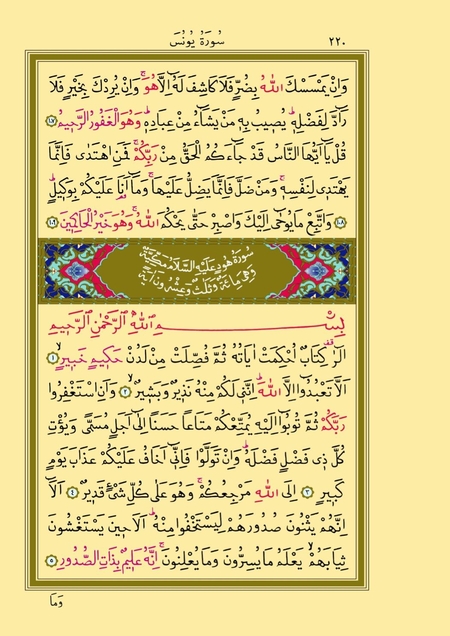 ٢٢٠ سُورَةُ يُونُسَ
وَاِنْ يَمْسَسْكَ اللّٰهُ بِضُرٍّ فَلَا كَاشِفَ لَهُٓ اِلَّا هُوَۚ وَاِنْ يُرِدْكَ بِخَيْرٍ فَلَا
رَٓادَّ لِفَضْلِه۪ۜ يُص۪يبُ بِه۪ مَنْ يَشَٓاءُ مِنْ عِبَادِه۪ۜ وَهُوَ الْغَفُورُ الرَّح۪يمُ ﴿١٠٧﴾
قُلْ يَٓا اَيُّهَا النَّاسُ قَدْ جَٓاءَكُمُ الْحَقُّ مِنْ رَبِّكُمْۚ فَمَنِ اهْتَدٰى فَاِنَّمَا
يَهْتَد۪ي لِنَفْسِه۪ۚ وَمَنْ ضَلَّ فَاِنَّمَا يَضِلُّ عَلَيْهَاۚ وَمَٓا اَنَا۬ عَلَيْكُمْ بِوَك۪يلٍۜ
﴿١٠٨﴾ وَاتَّبِعْ مَا يُوحٰٓى اِلَيْكَ وَاصْبِرْ حَتّٰى يَحْكُمَ اللّٰهُۚ وَهُوَ خَيْرُ الْحَاكِم۪ينَ ﴿١٠٩﴾
سُورَةُ هُودٍ عَلَيْهِ السَّلَامُ مَكِّيَّةٌ
وَهِيَ مِائَةٌ وَثَلٰثٌ وَعِشْرُونَ اٰيَةً
بِسْمِ اللّٰهِ الرَّحْمٰنِ الرَّح۪يمِ
الٓرٰ۠ كِتَابٌ اُحْكِمَتْ اٰيَاتُهُ ثُمَّ فُصِّلَتْ مِنْ لَدُنْ حَك۪يمٍ خَب۪يرٍۙ ﴿١﴾
اَلَّا تَعْبُدُٓوا اِلَّا اللّٰهَۜ اِنَّن۪ي لَكُمْ مِنْهُ نَذ۪يرٌ وَبَش۪يرٌۙ ﴿٢﴾ وَاَنِ اسْتَغْفِرُوا
رَبَّكُمْ ثُمَّ تُوبُٓوا اِلَيْهِ يُمَتِّعْكُمْ مَتَاعًا حَسَنًا اِلٰٓى اَجَلٍ مُسَمًّى وَيُؤْتِ
كُلَّ ذ۪ي فَضْلٍ فَضْلَهُۜ وَاِنْ تَوَلَّوْا فَاِنّ۪ٓي اَخَافُ عَلَيْكُمْ عَذَابَ يَوْمٍ
كَب۪يرٍ ﴿٣﴾ اِلَى اللّٰهِ مَرْجِعُكُمْۚ وَهُوَ عَلٰى كُلِّ شَيْءٍ قَد۪يرٌ ﴿٤﴾ اَلَٓا
اِنَّهُمْ يَثْنُونَ صُدُورَهُمْ لِيَسْتَخْفُوا مِنْهُۜ اَلَا ح۪ينَ يَسْتَغْشُونَ
ثِيَابَهُمْۙ يَعْلَمُ مَا يُسِرُّونَ وَمَا يُعْلِنُونَۚ اِنَّهُ عَل۪يمٌ بِذَاتِ الصُّدُورِ ﴿٥﴾
وَمَا